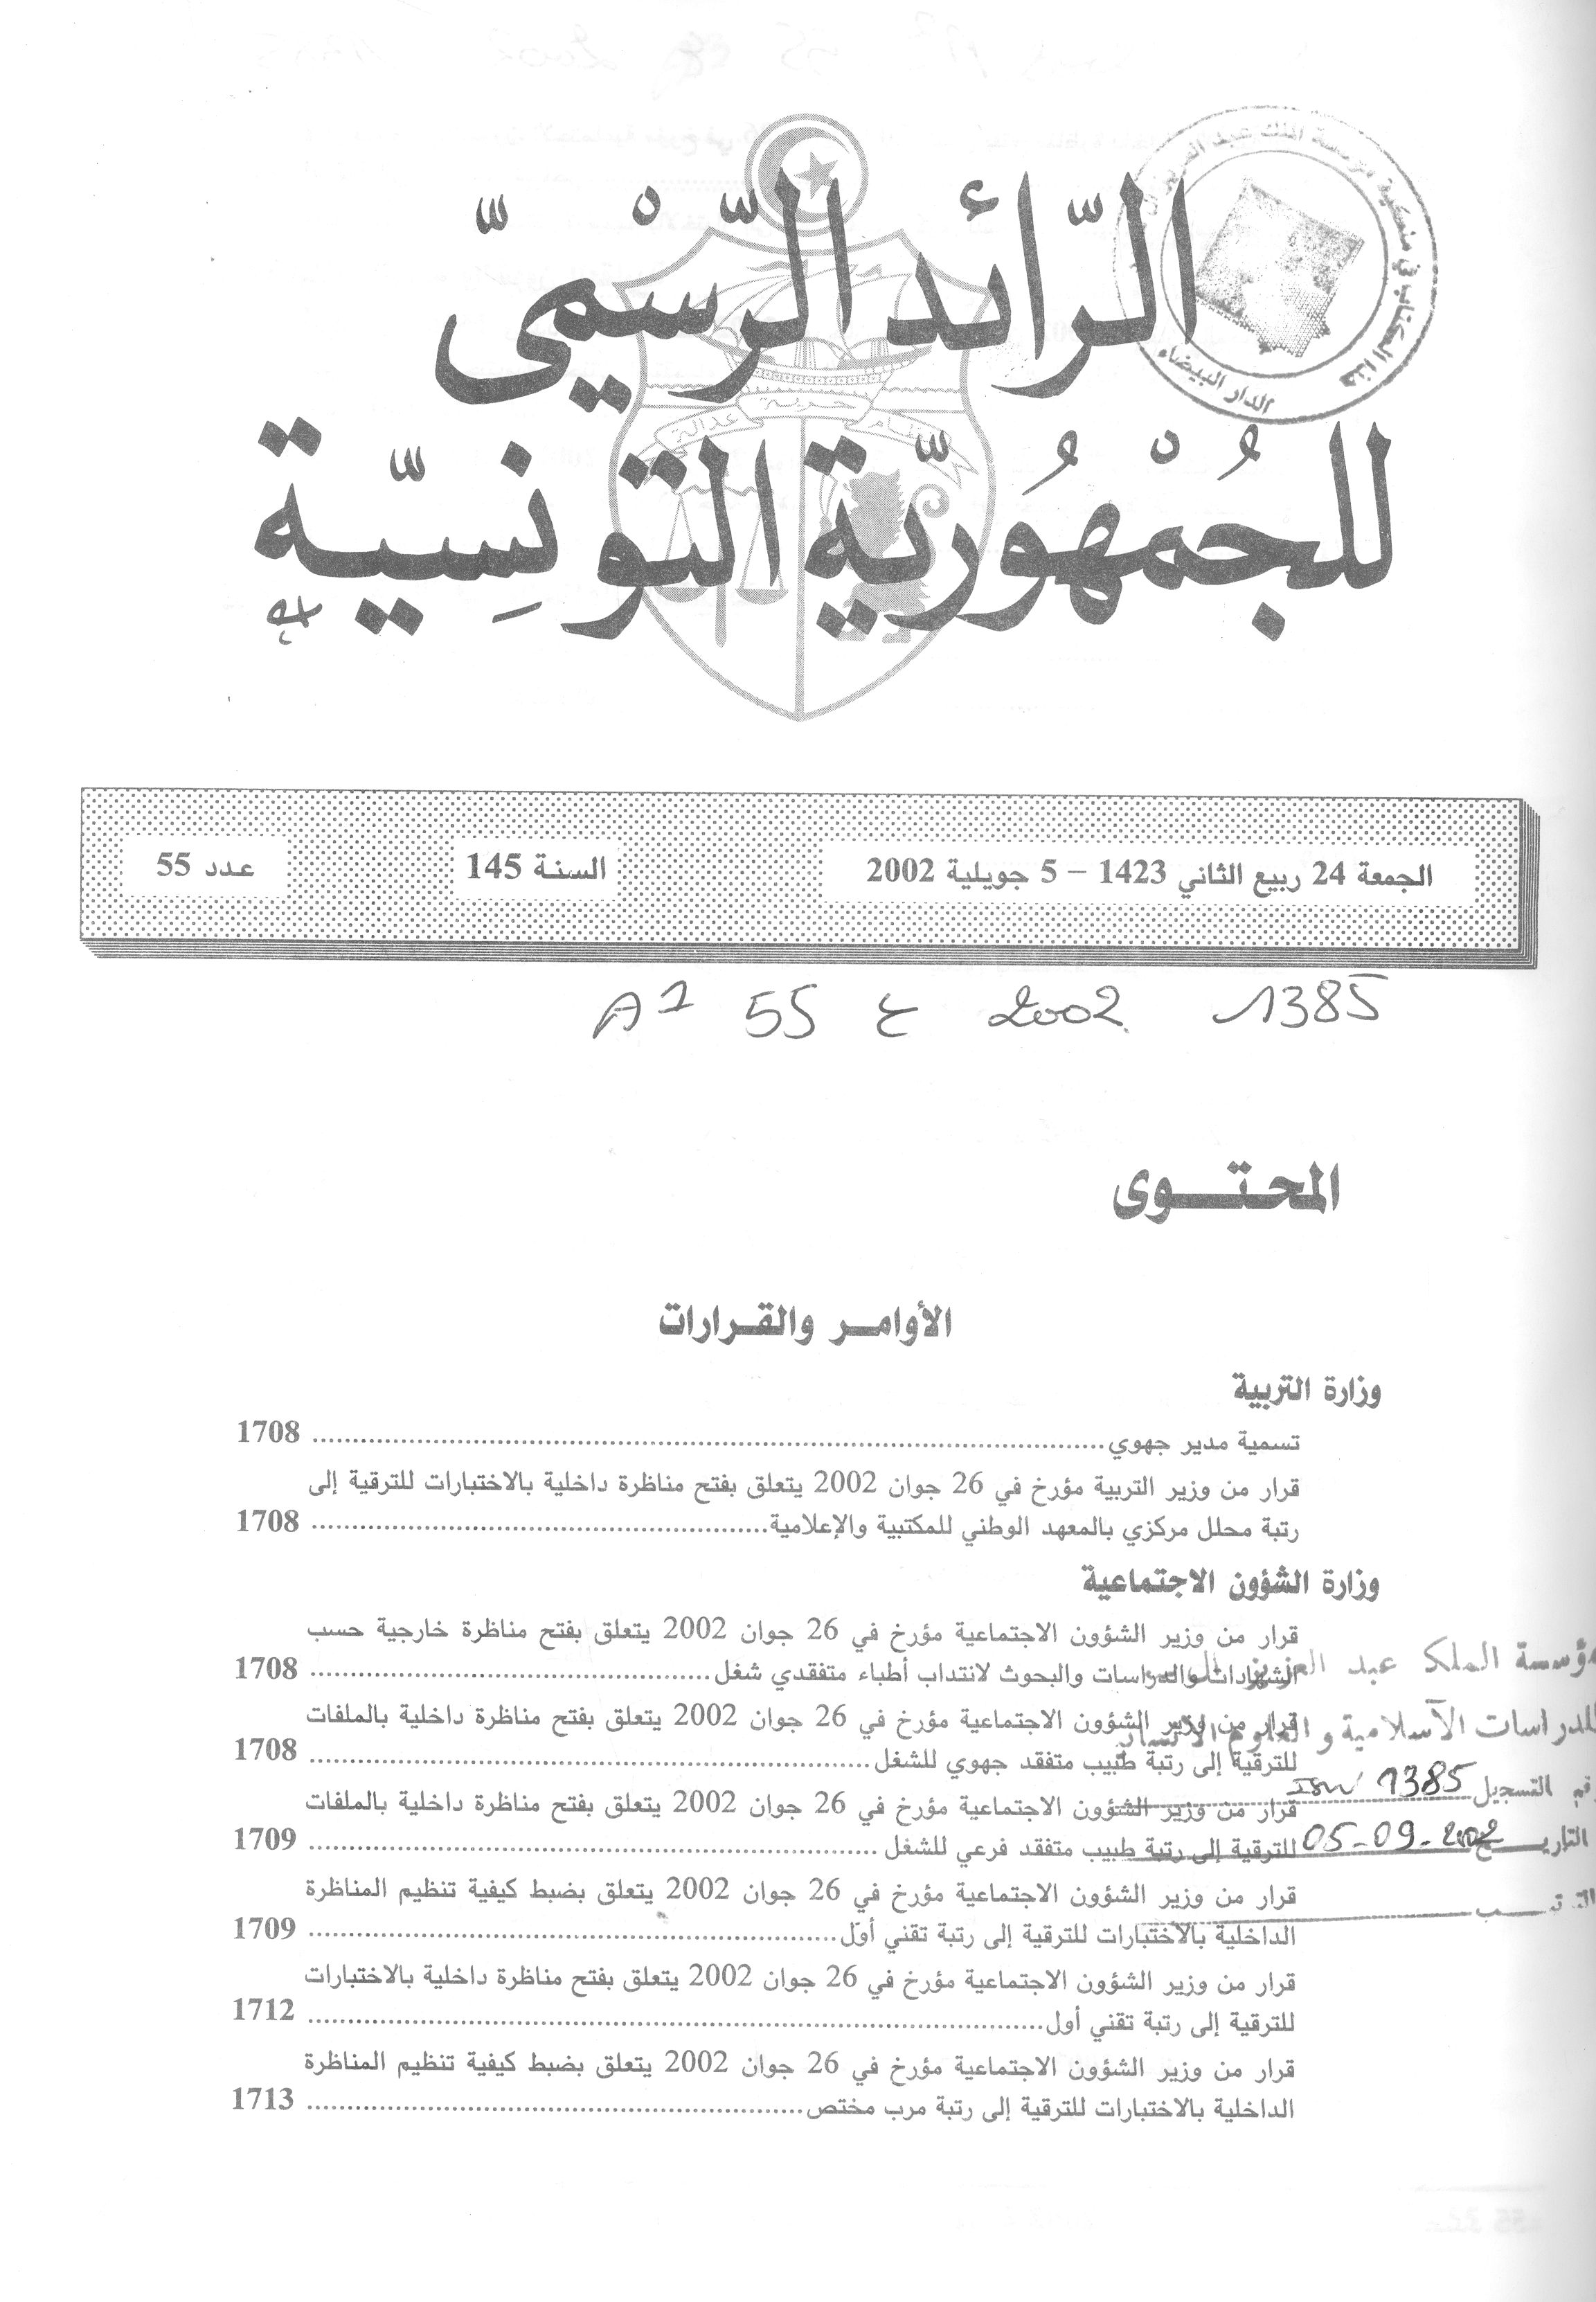 الرّائد الرّسْميّ
للجُمْهُوريّة التّونِسيّة
حرية
نظام
عدالة
هذا الكتاب في ملكية مؤسسة الملك عبد العزيز
الدار البيضاء
الجمعة 24 ربيع الثاني 1423 – 5 جويلية 2002
السنة 145
عدد 55
A1 55 ع 2002 1385
المحتوى
الأوامر والقرارات
وزارة التربية
تسمية مدير جهوي ........ 1708
قرار من وزير التربية مؤرخ في 26 جوان 2002 يتعلق بفتح مناظرة داخلية بالاختبارات للترقية إلى
رتبة محلل مركزي بالمعهد الوطني للمكتبية والإعلامية ........ 1708
وزارة الشؤون الاجتماعية
قرار من وزير الشؤون الاجتماعية مؤرخ في 26 جوان 2002 يتعلق بفتح مناظرة خارجية حسب
الشهادات والدراسات والبحوث لانتداب أطباء متفقدي شغل ........ 1708
قرار من وزير الشؤون الاجتماعية مؤرخ في 26 جوان 2002 يتعلق بفتح مناظرة داخلية بالملفات
للترقية إلى رتبة طبيب متفقد جهوي للشغل ........ 1708
قرار من وزير الشؤون الاجتماعية مؤرخ في 26 جوان 2002 يتعلق بفتح مناظرة داخلية بالملفات
للترقية إلى رتبة طبيب متفقد فرعي للشغل ........ 1709
قرار من وزير الشؤون الاجتماعية مؤرخ في 26 جوان 2002 يتعلق بضبط كيفية تنظيم المناظرة
الداخلية بالاختبارات للترقية إلى رتبة تقني أول ........ 1709
قرار من وزير الشؤون الاجتماعية مؤرخ في 26 جوان 2002 يتعلق بفتح مناظرة داخلية بالاختبارات
للترقية إلى رتبة تقني أول ........ 1712
قرار من وزير الشؤون الاجتماعية مؤرخ في 26 جوان 2002 يتعلق بضبط كيفية تنظيم المناظرة
الداخلية بالاختبارات للترقية إلى رتبة مرب مختص ........ 1713
مؤسسة الملك عبد العزيز
للدراسات الاسلامية والعلوم الانسانية
رقم التسجيل 1385
التاريخ 05-09-2002